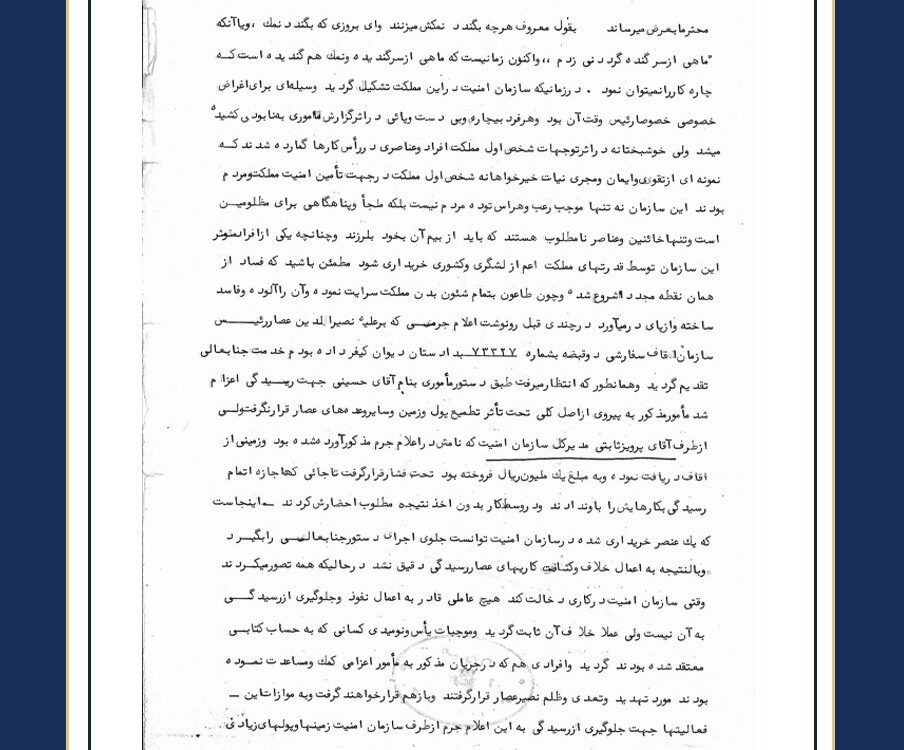 محترما بعرض میرساند بقول معروف هرچه بگندد نمکش میزنند وای بروزی که بگندد نمک ، ویاآنکه
"ماهی ازسرگنده گردد نی زدم ،، واکنون زمانیست که ماهی ازسرگندیده ونمک هم گندیده است کـه
چاره کاررانمیتوان نمود . درزمانیکه سازمان امنیت دراین مملکت تشکیل گردید وسیله‌ای برای اغراض
خصوصی خصوصا رئیس وقت آن بود وهرفرد بیچاره وبی دست وپائی دراثرگزارش مأموری به نابودی کشیده
میشد ولی خوشبختانه دراثرتوجهات شخص اول مملکت افراد وعناصری دررأس کارها گمارده شدند کـه
نمونه ای ازتقوی وایمان ومجری نیات خیرخواهانه شخص اول مملکت درجهت تأمین امنیت مملکت ومردم
بودند این سازمان نه تنها موجب رعب وهراس توده مردم نیست بلکه ملجأ وپناهگاهی برای مظلومیـن
است وتنها خائنین وعناصر نامطلوب هستند که باید ازبیم آن بخود بلرزند وچنانچه یکی ازافرادموثر
این سازمان توسط قدرتهای مملکت اعم ازلشگری وکشوری خریداری شود مطمئن باشید که فساد از
همان نقطه مجددا شروع شده وچون طاعون بتمام شئون بدن مملکت سرایت نموده وآن راآلوده وفاسد
ساخته وازپای درمیآورد درچندی قبل رونوشت اعلام جرمـی که برعلیه نصیرالدین عصاررئیـــس
سازمان اوقاف سفارشی دوقبضه بشماره ۷۳۳۲۷ بدادستان دیوان کیفر داده بودم خدمت جنابعالی
تقدیم گردید وهمانطور که انتظارمیرفت طبق دستورمأموری بنام آقای حسینی جهت رسیدگی اعزام
شد مأمورمذکور به پیروی ازاصل کلی تحت تأثر تطمیع پول وزمین وسایروعده‌های عصار قرارنگرفت‌ولـی
ازطرف آقای پرویزثابتی مدیرکل سازمان امنیت که نامش‌دراعلام جرم مذکورآورده‌شده بود وزمینی‌از
اوقاف دریافت نموده وبه مبلغ یک ملیون‌ریال فروخته بود تحت فشارقرارگرفت تاجائی که‌اجازه اتمام
رسیدگی بکارهایش را باوندادند ودروسط‌کار بدون اخذنتیجه مطلوب احضارش‌کردند ـ اینجاست
که یک عنصر خریداری شده درسازمان امنیت توانست جلوی اجرای دستورجنابعالـی رابگیرد
وبالنتیجه به اعمال خلاف وکثافت کاریهای عصاررسیدگی دقیق نشد درحالیکه همه تصورمیکـردند
وقتی سازمان امنیت درکاری دخالت کند هیچ عاملی قادر به اعمال نفوذ وجلوگیری ازرسیدگـــی
به آن نیست ولی عملا خلاف آن ثابت‌گردید وموجبات یأس‌ونومیدی کسانی که به حساب کتابـی
معتقد شده بودند گردید وافرادی هم که درجریان مذکور به مأمور اعزامی کمک ومساعدت نمـوده
بودند مورد تهدید وتعدی وظلم نصیرعصار قرارگرفتند وبازهم قرارخواهند گرفت‌وبه موازات‌این ــ
فعالیتها جهت جلوگیری ازرسیدگی به این اعلام جرم ازطرف سازمان امنیت زمینهاوپولهای‌زیادی